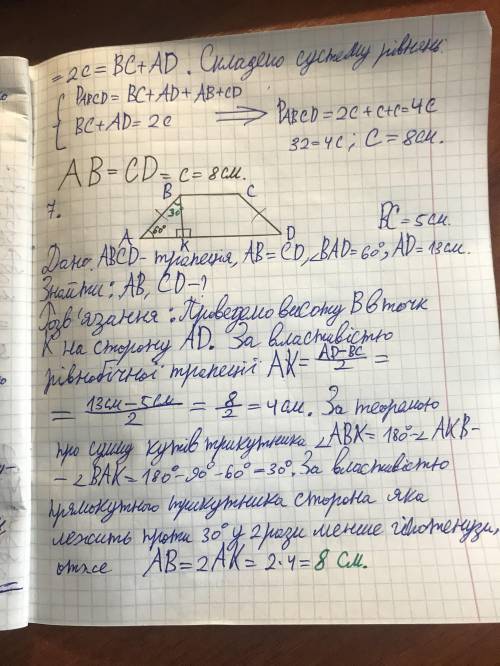 = 2c = BC + AD. Складемо систему рівнянь
{ PABCD = BC + AD + AB + CD
BC + AD = 2c
⟹ PABCD = 2c + c + c = 4c
32 = 4c; C = 8см.
AB = CD = c = 8см.
7.
B C
30
60°
A K D
BC = 5см.
Дано: ABCD - трапеція, AB = CD, ∠BAD = 60°, AD = 13см.
Знайти: AB, CD - ?
Розв'язання: Проведемо висоту B в точк
K на сторону AD. За властивістю
рівнобічної трапеції AK = (AD - BC)/2 =
= (13см - 5см)/2 = 8/2 = 4см. За теоремою
про суму кутів трикутника ∠ABK = 180° - ∠AKB -
- ∠BAK = 180° - 90° - 60° = 30°. За властивістю
прямокутного трикутника сторона яка
лежить проти 30° у 2 рази менше гіпотенузи,
отже AB = 2AK = 2·4 = 8 см.